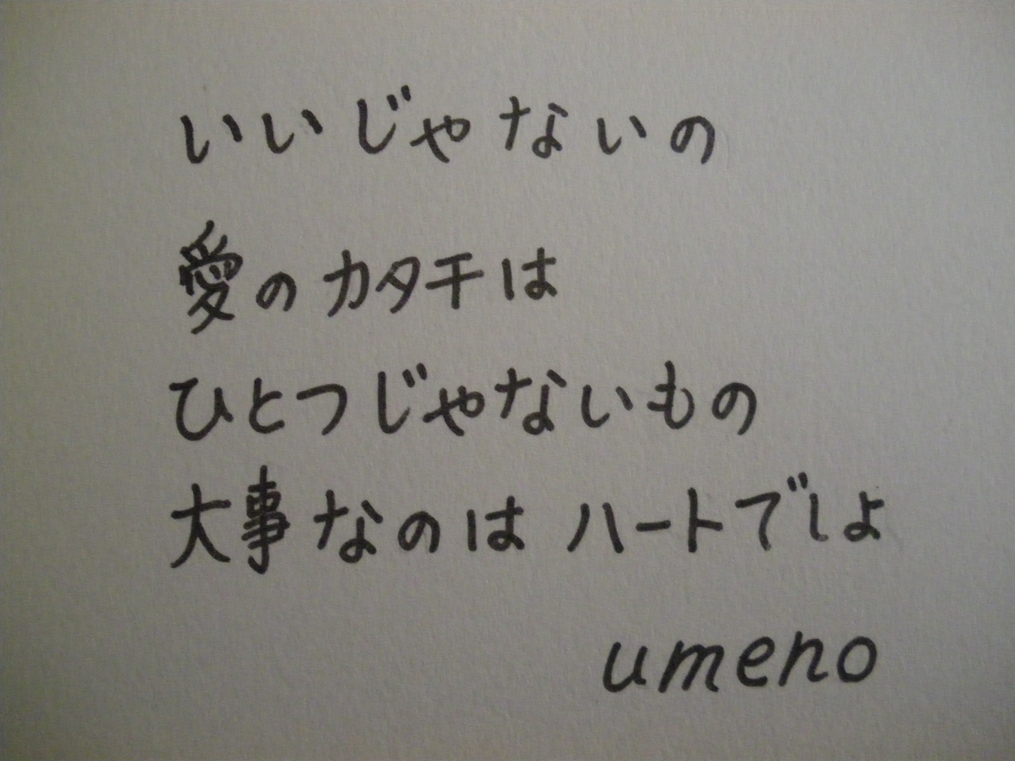 いいじゃないの
愛のカタチは
ひとつじゃないもの
大事なのは ハートでしょ
umeno